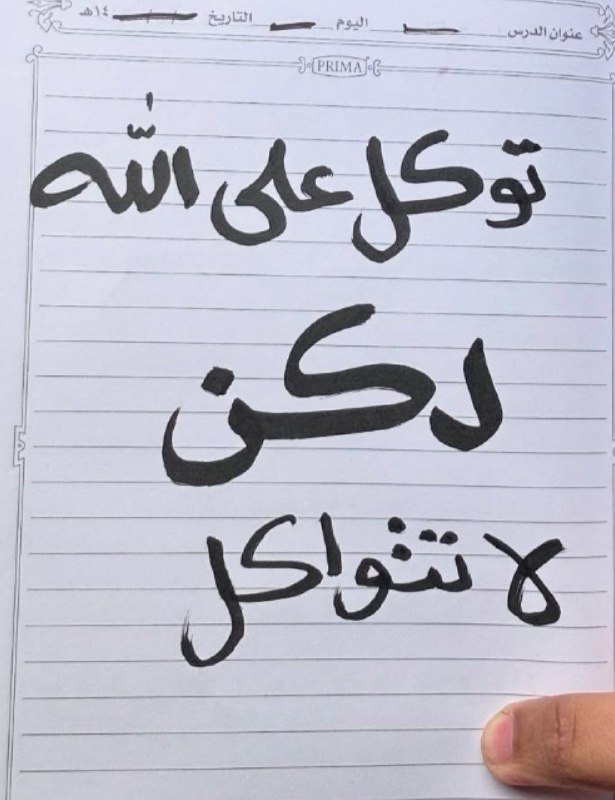 عنوان الدرس اليوم التاريخ ١٤هـ
PRIMA
توكل على الله
لكن
لا تتواكل